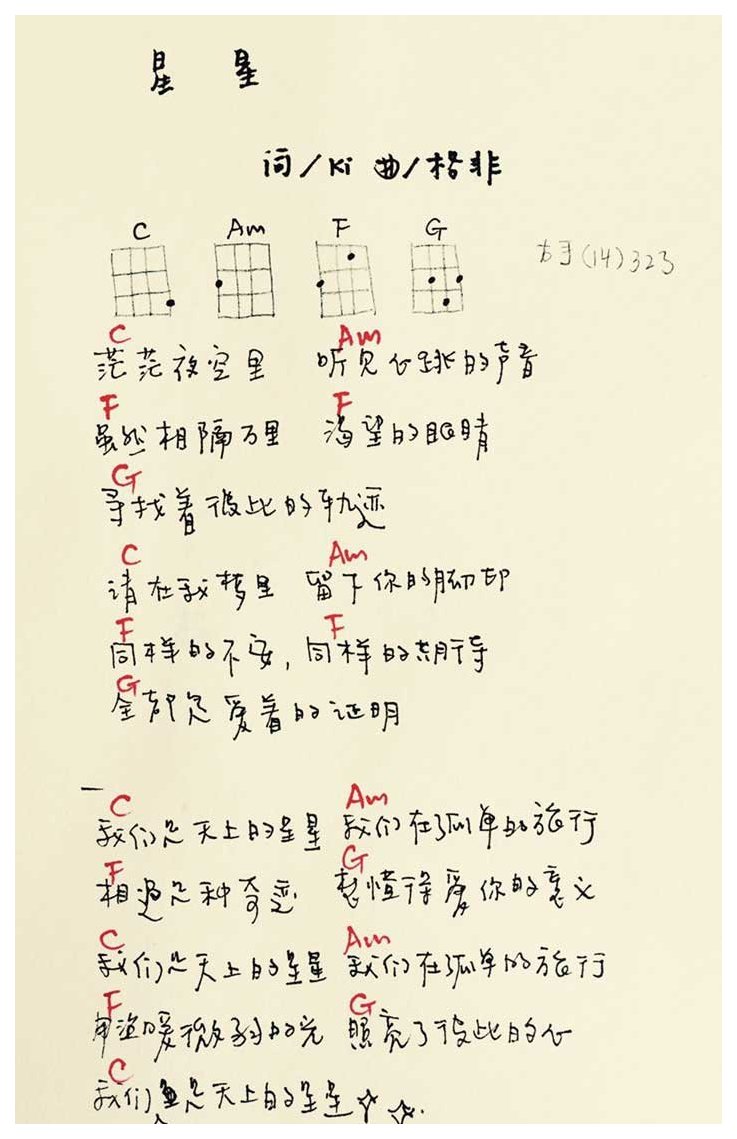 星 星
词/Ki 曲/楷非
C Am F G
(14)323
C Am
茫茫夜空里 听见心跳的声音
F F
虽然相隔万里 渴望的眼睛
G
寻找着彼此的轨迹
C Am
请在我梦里 留下你的脚印
F F
同样的不安，同样的期待
G
全都是爱着的证明
C Am
我们是天上的星星 我们在孤单的旅行
F G
相遇是种奇迹 懂得爱你的意义
C Am
我们是天上的星星 我们在孤单的旅行
F G
暖微弱的光 照亮了彼此的心
C
我们是天上的星星☆☆.